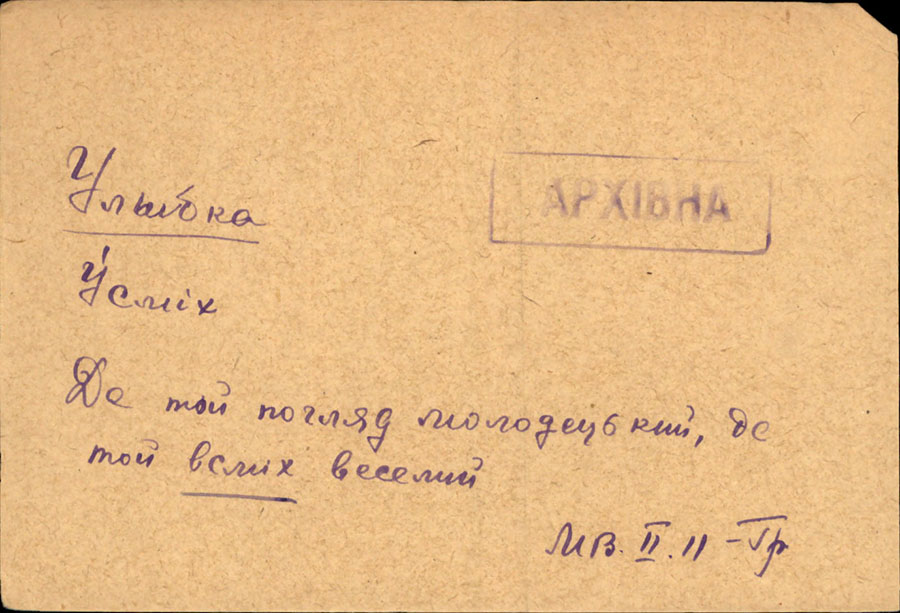 Улыбка
АРХІВНА
У́сміх
Де той погляд молодецький, де
той всміх веселий
МВ. II. 11 - Гр